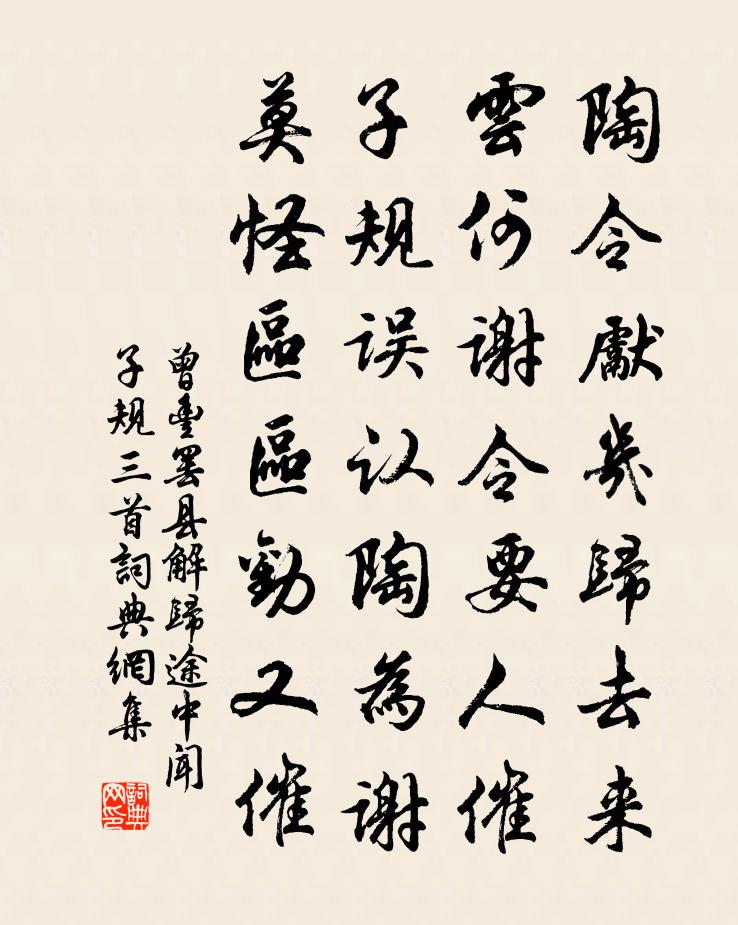 陶令獻幾歸去来
雲何谢令要人催
子规误认陶為谢
莫怪區區勸又催
曾豐罢县解歸途中闻
子规三首詞典網集
詞典网印